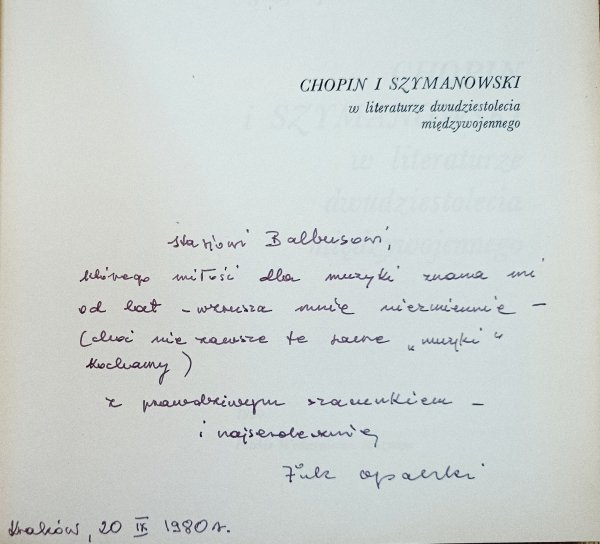 CHOPIN I SZYMANOWSKI
w literaturze dwudziestolecia
międzywojennego
Stasiowi Balbusowi,
którego miłość dla muzyki znana mi
od lat – wzrusza mnie niezmiennie –
(choć nie zawsze te same „muzyki"
kochamy)
z prawdziwym szacunkiem –
i najserdeczniej
Opalski
Kraków, 20 IX 1980 r.